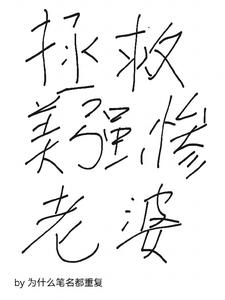 拯救
美强惨
老婆
by 为什么笔名都重复